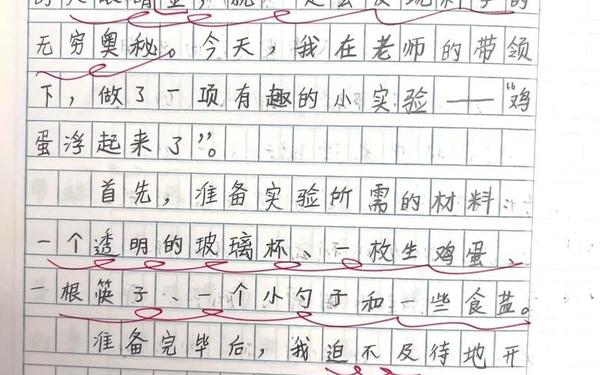 无穷奥秘。今天，我在老师的带领
下，做了一项有趣的小实验——“鸡
蛋浮起来了”。
首先，准备实验所需的材料：
一个透明的玻璃杯、一枚生鸡蛋、
一根筷子、一个小勺子和一些食盐。
准备完毕后，我迫不及待地开